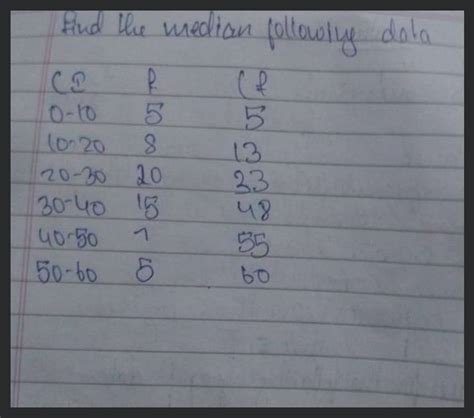 find the median following data
CI f Cf
0-10 5 5
10-20 8 13
20-30 20 33
30-40 15 48
40-50 7 55
50-60 5 60